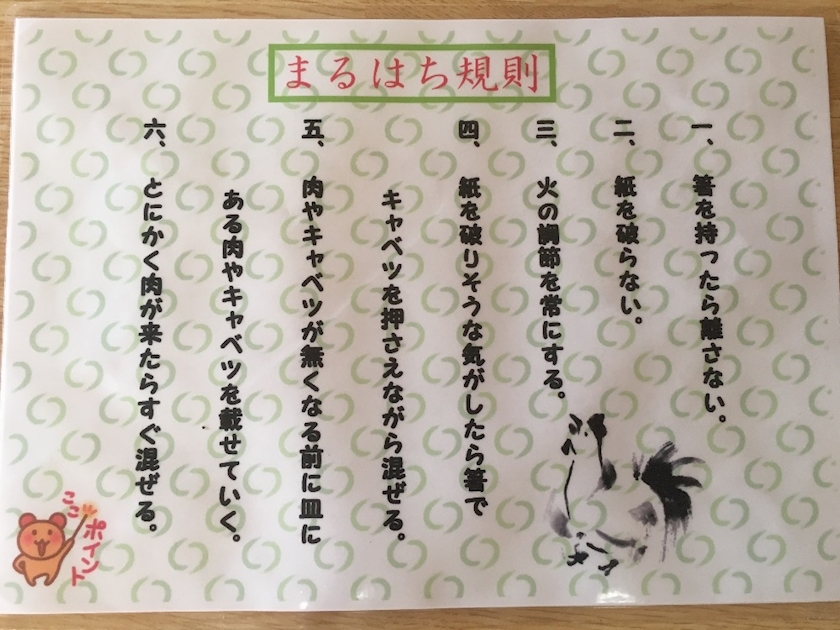 まるはち規則
一、箸を持ったら離さない。
二、紙を破らない。
三、火の調節を常にする。
四、紙を破りそうな気がしたら箸で
キャベツを押さえながら混ぜる。
五、肉やキャベツが無くなる前に皿に
ある肉やキャベツを載せていく。
六、とにかく肉が来たらすぐ混ぜる。
ここ
ポイント